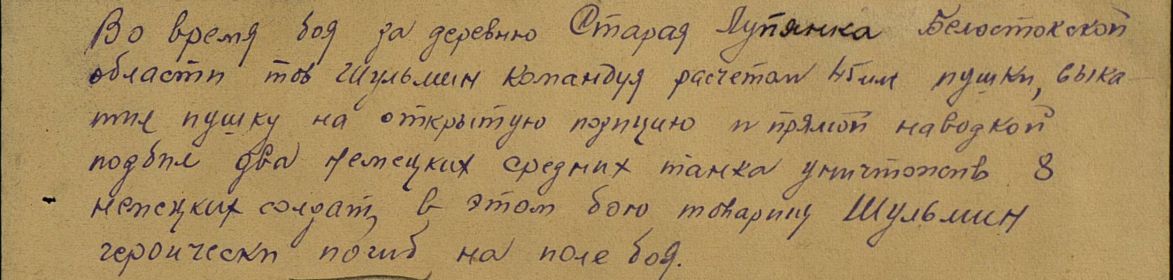 Во время боя за деревню Старая Лупянка Белостокской
области тов Шульмин командуя расчетом 45мм пушки, выка
тил пушку на открытую позицию и прямой наводкой
подбил два немецких средних танка уничтожив 8
немецких солдат, в этом бою товарищ Шульмин
героически погиб на поле боя.